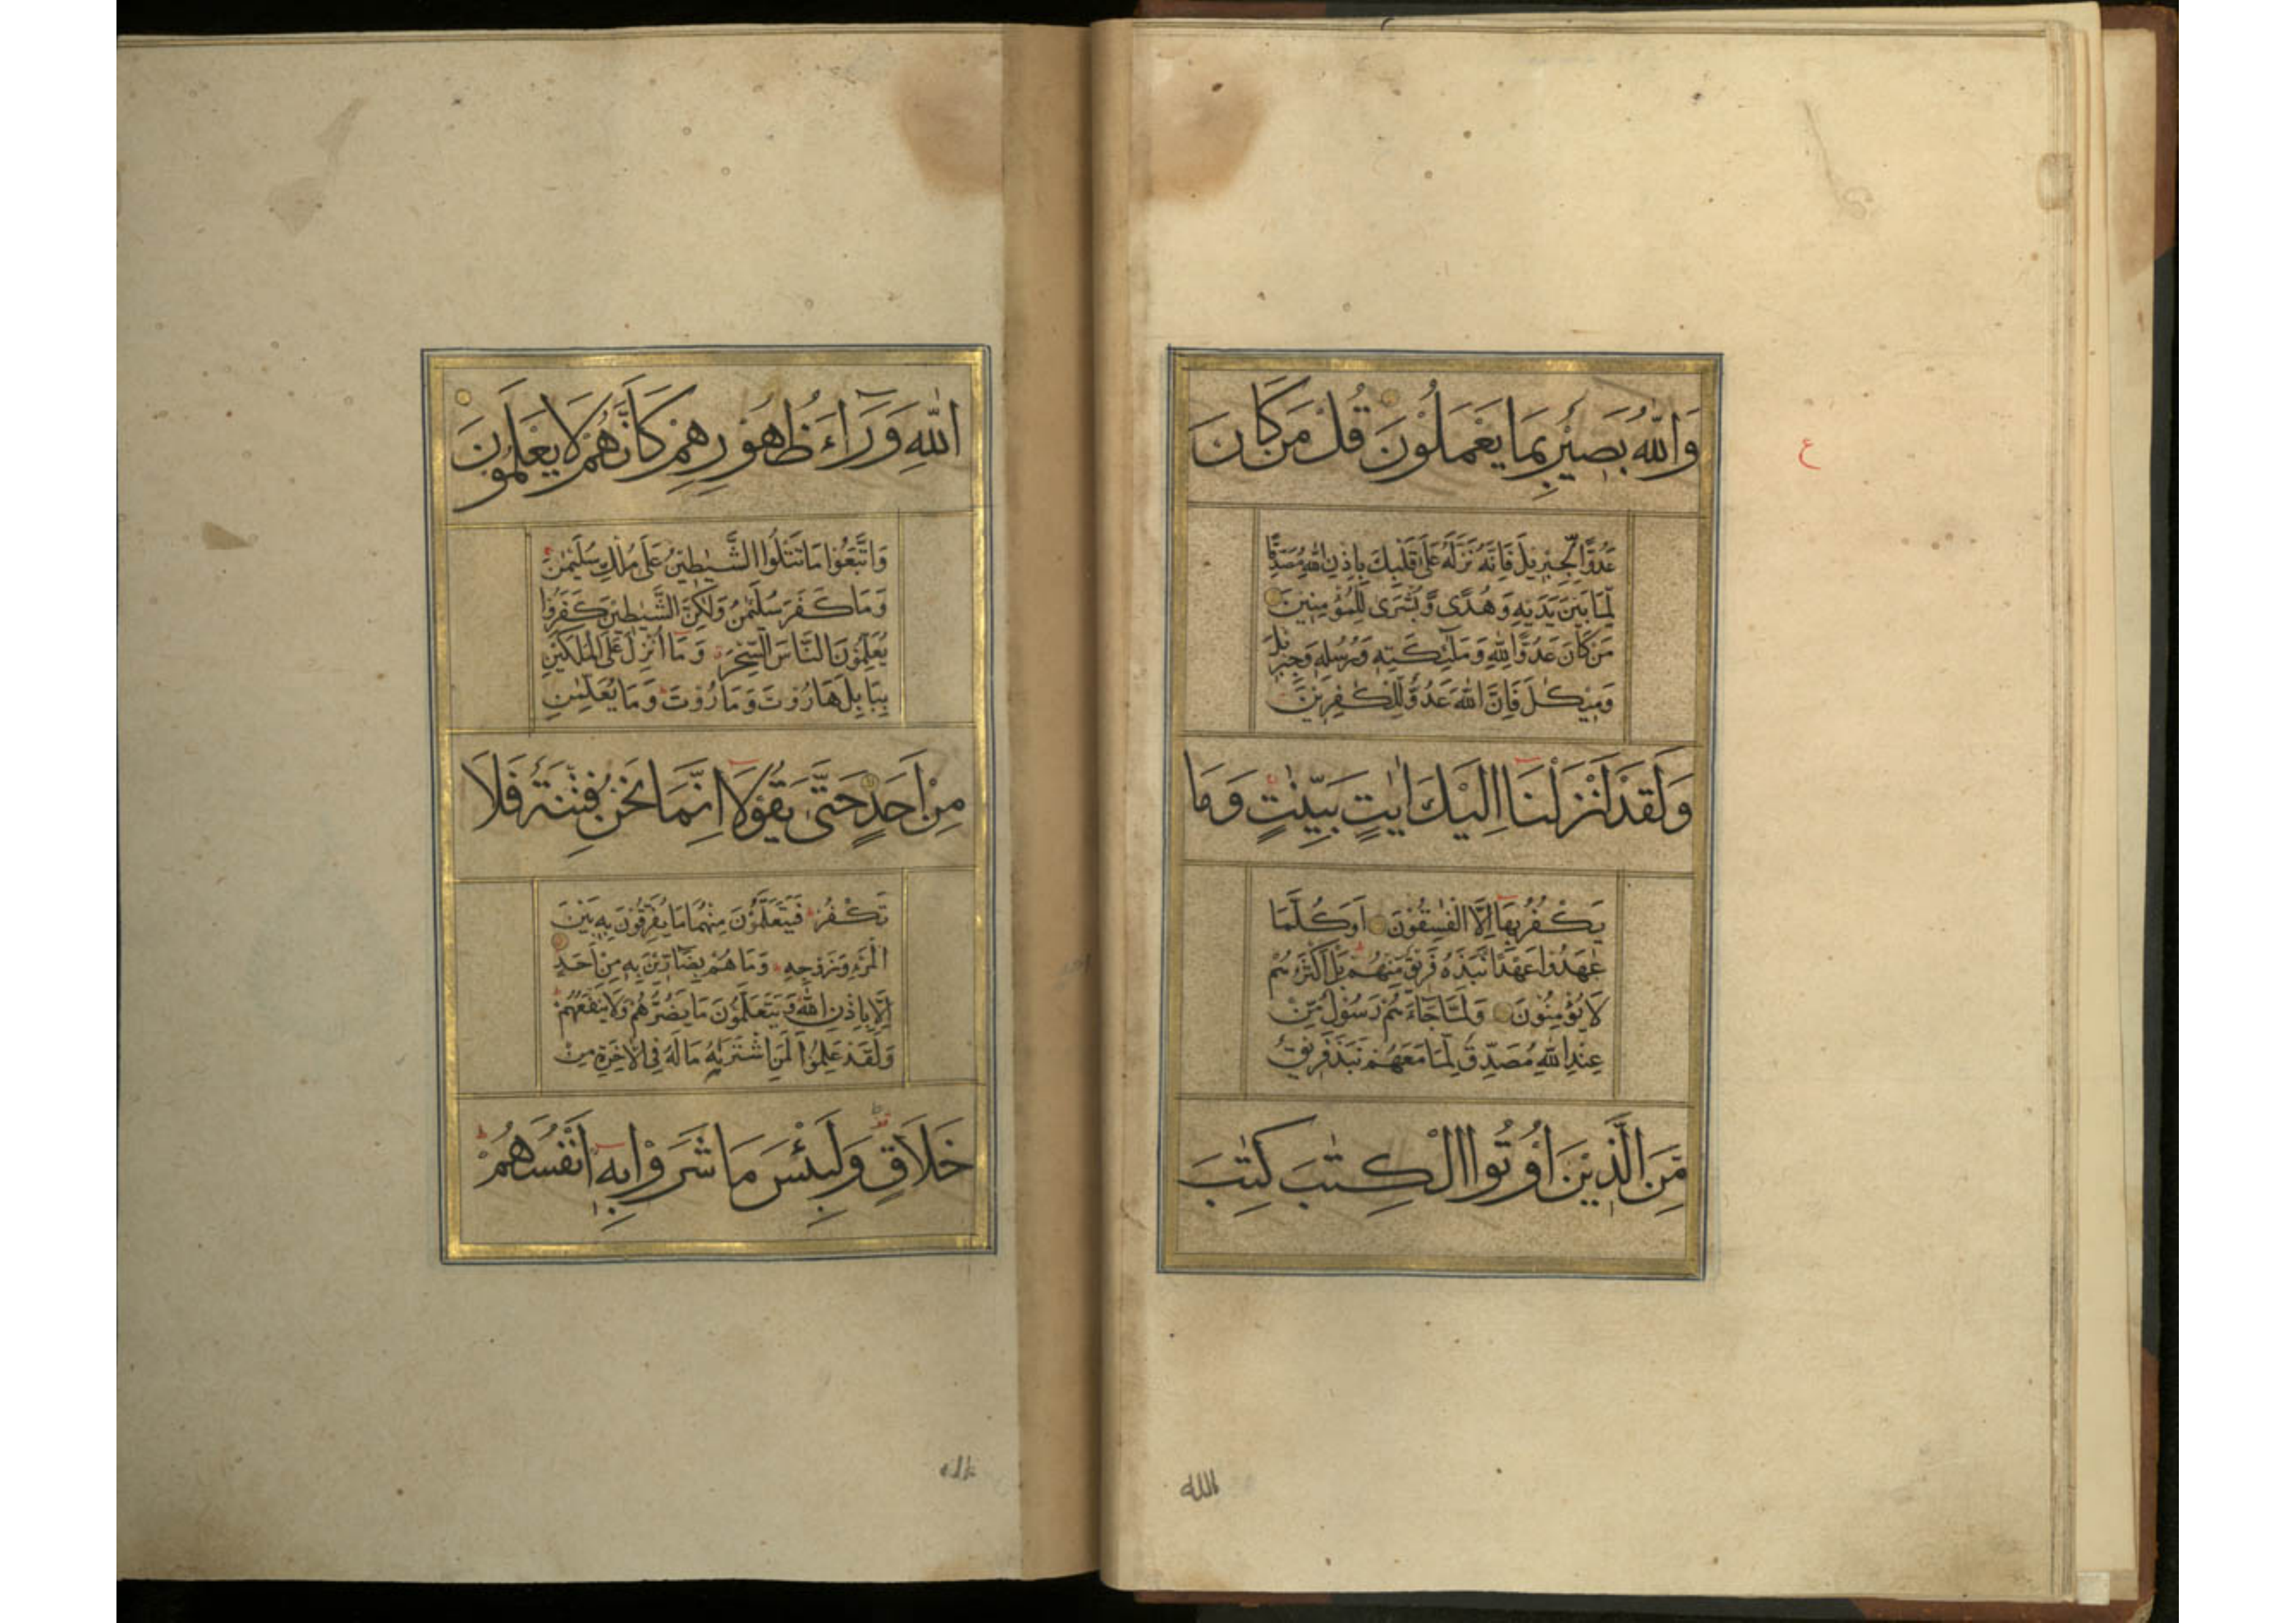 وَاللّٰهُ بَصِيْرٌ بِمَا يَعْمَلُوْنَ قُلْ مَنْ كَانَ
ع
عَدُوًّا لِّجِبْرِيْلَ فَاِنَّهُ نَزَّلَهُ عَلٰى قَلْبِكَ بِاِذْنِ اللّٰهِ مُصَدِّقًا
لِّمَا بَيْنَ يَدَيْهِ وَهُدًى وَّبُشْرٰى لِلْمُؤْمِنِيْنَ
مَنْ كَانَ عَدُوًّا لِلّٰهِ وَمَلٰٓئِكَتِهٖ وَرُسُلِهٖ وَجِبْرِيْلَ
وَمِيْكٰلَ فَاِنَّ اللّٰهَ عَدُوٌّ لِّلْكٰفِرِيْنَ
وَلَقَدْ اَنْزَلْنَا اِلَيْكَ اٰيٰتٍ بَيِّنٰتٍ وَمَا
يَكْفُرُ بِهَا اِلَّا الْفٰسِقُوْنَ اَوَكُلَّمَا
عٰهَدُوْا عَهْدًا نَّبَذَهُ فَرِيْقٌ مِّنْهُمْ بَلْ اَكْثَرُهُمْ
لَا يُؤْمِنُوْنَ وَلَمَّا جَآءَهُمْ رَسُوْلٌ مِّنْ
عِنْدِ اللّٰهِ مُصَدِّقٌ لِّمَا مَعَهُمْ نَبَذَ فَرِيْقٌ
مِّنَ الَّذِيْنَ اُوْتُوا الْكِتٰبَ كِتٰبَ
الله
اللّٰهِ وَرَآءَ ظُهُوْرِهِمْ كَاَنَّهُمْ لَا يَعْلَمُوْنَ
وَاتَّبَعُوْا مَا تَتْلُوا الشَّيٰطِيْنُ عَلٰى مُلْكِ سُلَيْمٰنَ
وَمَا كَفَرَ سُلَيْمٰنُ وَلٰكِنَّ الشَّيٰطِيْنَ كَفَرُوْا
يُعَلِّمُوْنَ النَّاسَ السِّحْرَ وَمَا اُنْزِلَ عَلَى الْمَلَكَيْنِ
بِبَابِلَ هَارُوْتَ وَمَارُوْتَ وَمَا يُعَلِّمٰنِ
مِنْ اَحَدٍ حَتّٰى يَقُوْلَا اِنَّمَا نَحْنُ فِتْنَةٌ فَلَا
تَكْفُرْ فَيَتَعَلَّمُوْنَ مِنْهُمَا مَا يُفَرِّقُوْنَ بِهٖ بَيْنَ
الْمَرْءِ وَزَوْجِهٖ وَمَا هُمْ بِضَآرِّيْنَ بِهٖ مِنْ اَحَدٍ
اِلَّا بِاِذْنِ اللّٰهِ وَيَتَعَلَّمُوْنَ مَا يَضُرُّهُمْ وَلَا يَنْفَعُهُمْ
وَلَقَدْ عَلِمُوْا لَمَنِ اشْتَرٰىهُ مَا لَهُ فِى الْاٰخِرَةِ مِنْ
خَلَاقٍ وَلَبِئْسَ مَا شَرَوْا بِهٖ اَنْفُسَهُمْ